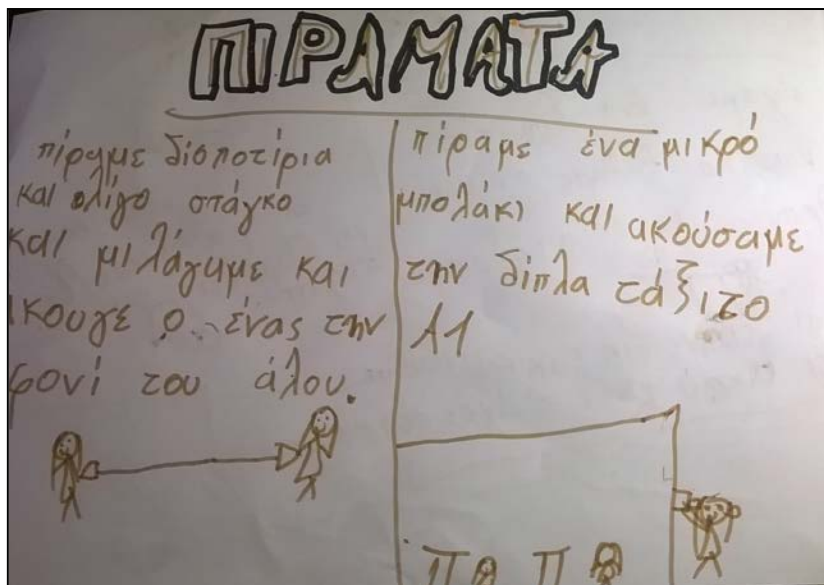 ΠΙΡΑΜΑΤΑ
πίραμε δίοποτίρια
και ολίγο σπάγκο
και μιλάγαμε και
ικουγε ο ένας την
φονί του άλου.
πίραμε ένα μικρό
μπολάκι και ακούσαμε
την δίπλα τάξι το
Α1